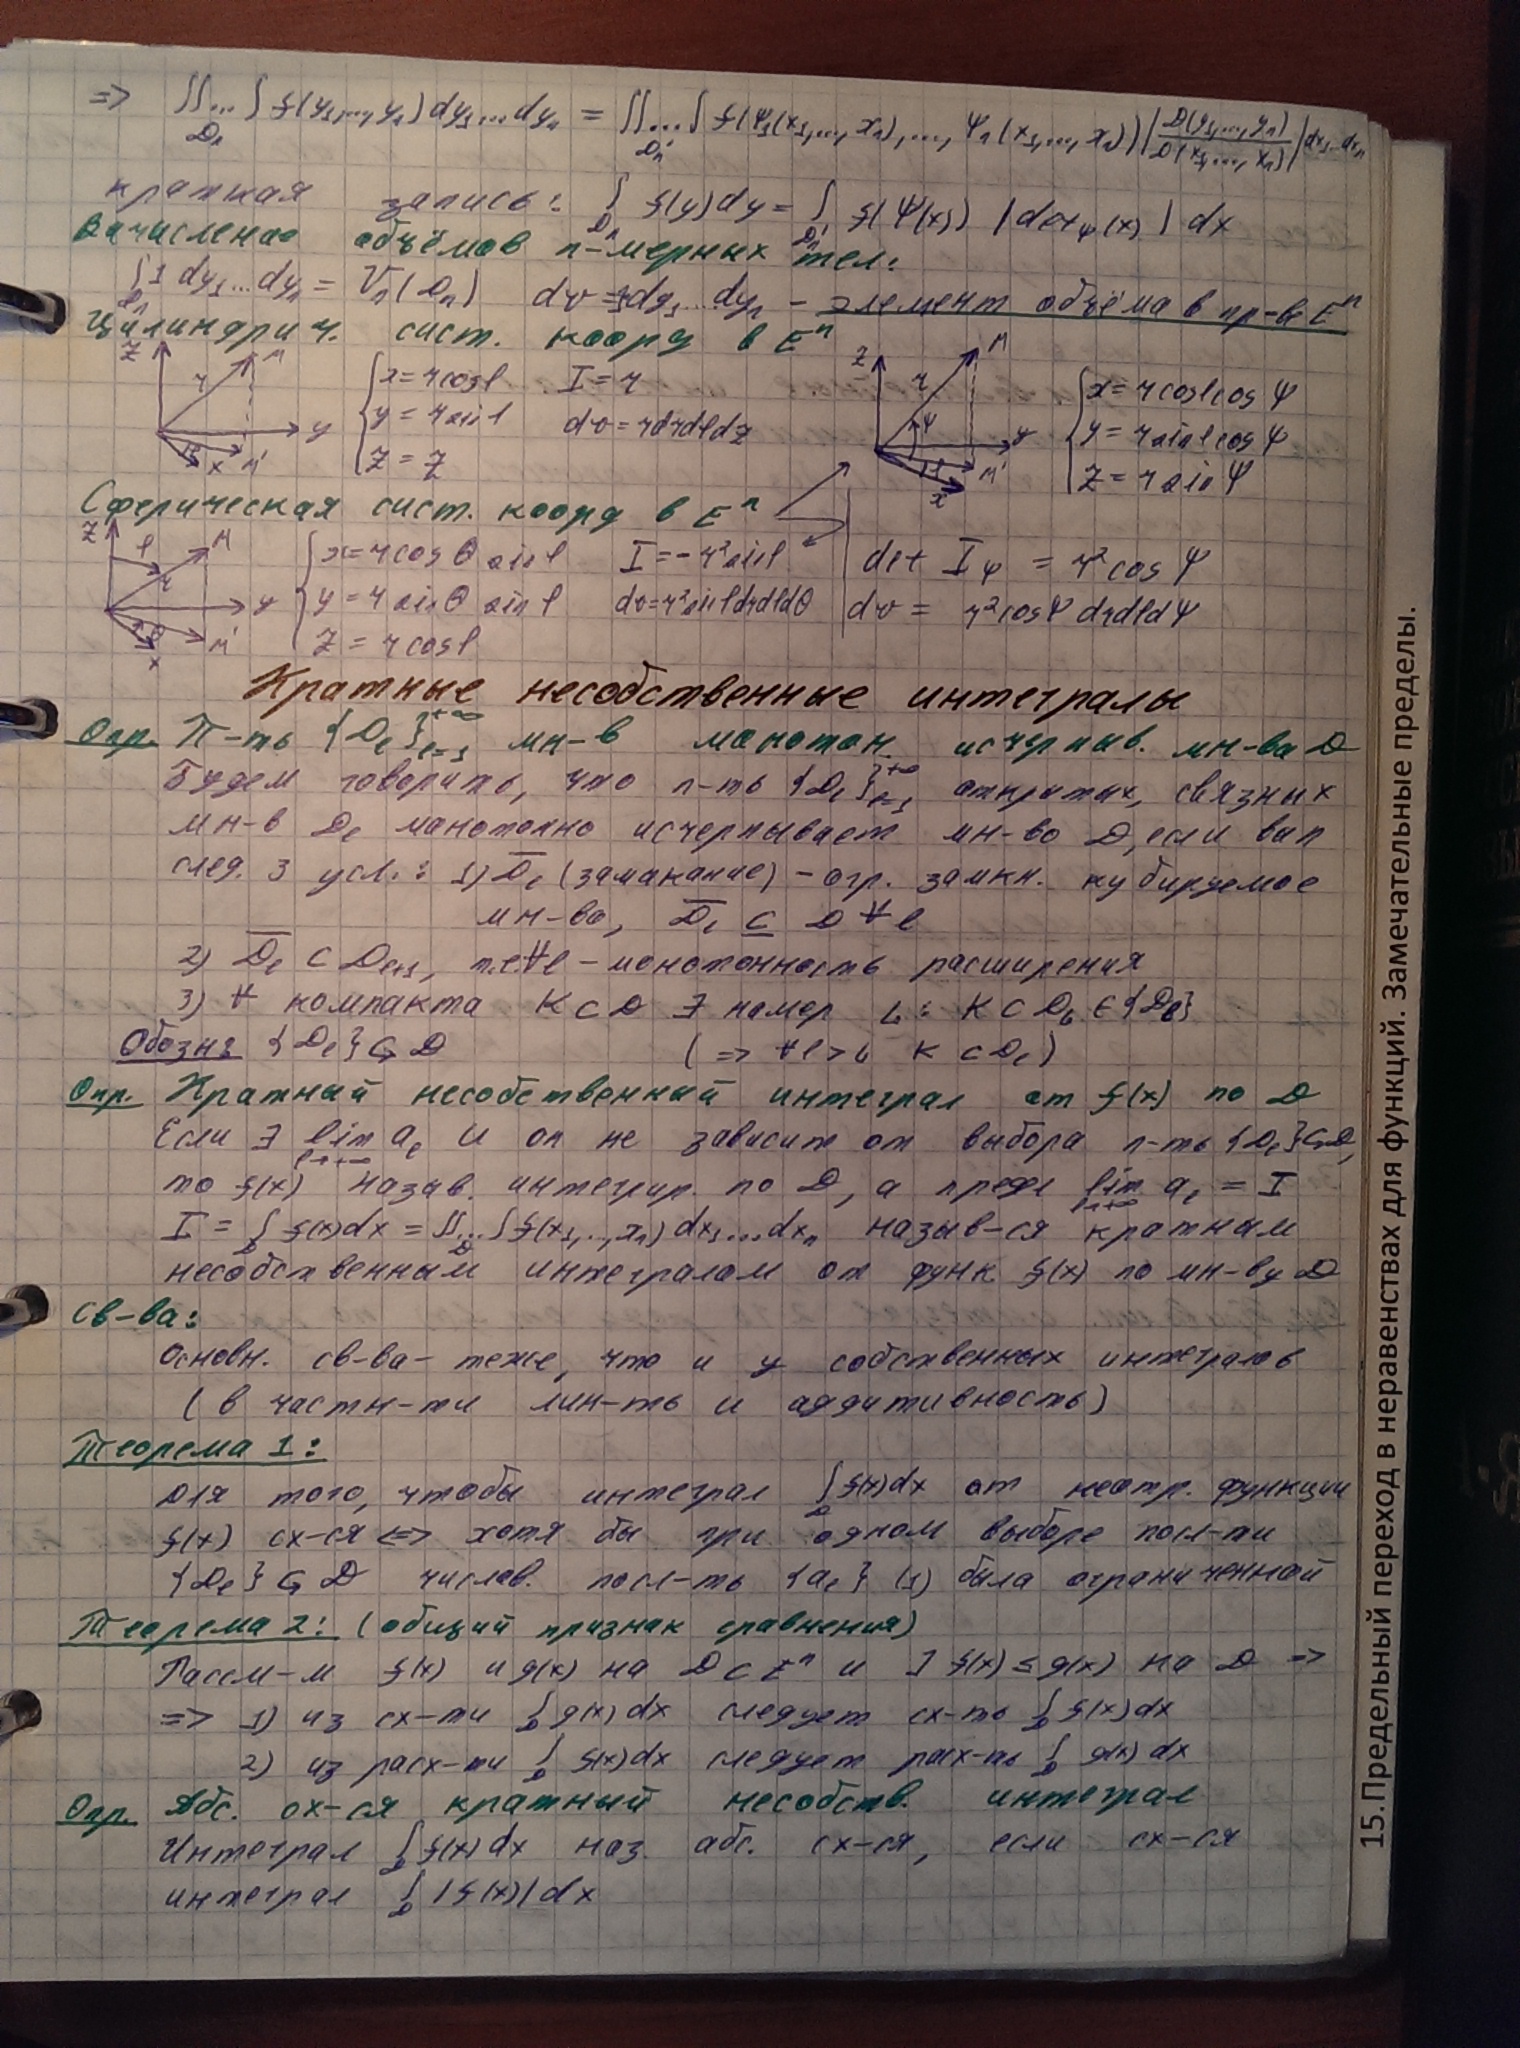 => ∫∫...∫ f(y₁,...,yₙ) dy₁...dyₙ = ∫∫...∫ f(Ψ₁(x₁,...,xₙ),...,Ψₙ(x₁,...,xₙ)) |D(y₁,...,yₙ)/D(x₁,...,xₙ)| dx₁...dxₙ
Dₙ Dₙ'
краткая запись: ∫ f(y)dy = ∫ f(Ψ(x)) |det_Ψ(x)| dx
Dₙ Dₙ'
Вычисление объёмов n-мерных тел:
∫1 dy₁...dyₙ = Vₙ(Dₙ) dv = 1dy₁...dyₙ - элемент объёма в пр-ве Eⁿ
Dₙ
Цилиндрич. сист. коорд в Eⁿ
z r M y x M' φ
x = r cosφ I = r
y = r sinφ dv = r dr dφ dz
z = z
z r M Ψ y φ M' x
x = r cosφ cosΨ
y = r sinφ cosΨ
z = r sinΨ
Сферическая сист. коорд в Eⁿ
z φ M r y θ M' x
x = r cosθ sinφ I = -r² sinφ
y = r sinθ sinφ dv = r² sinφ dr dφ dθ
z = r cosφ
det I_Ψ = r² cosΨ
dv = r² cosΨ dr dφ dΨ
Кратные несобственные интегралы
Опр. П-ть {Dₗ}ₗ₌₁^{+∞} мн-в монотон. исчерпыв. мн-ва D
Будем говорить, что п-ть {Dₗ}ₗ₌₁^{+∞} открытых, связных
мн-в Dₗ монотонно исчерпывает мн-во D, если вып
след. 3 усл.: 1) D̅ₗ (замыкание) - огр. замкн. кубируемое
мн-во, D̅ₗ ⊆ D ∀ l
2) D̅ₗ ⊂ Dₗ₊₁, т.е ∀l - монотонность расширения
3) ∀ компакта K ⊂ D ∃ номер L: K ⊂ D_L ∈ {Dₗ}
Обозн: {Dₗ} ⊂→ D (=> ∀l > L K ⊂ Dₗ)
Опр. Кратный несобственный интеграл от f(x) по D
Если ∃ lim aₗ и он не зависит от выбора п-ть {Dₗ} ⊂→ D,
l→+∞
то f(x) назыв. интегрир. по D, а предел lim aₗ = I
l→+∞
I = ∫_D f(x)dx = ∫∫...∫_D f(x₁,..,xₙ) dx₁...dxₙ назыв-ся кратным
несобственным интегралом от функ. f(x) по мн-ву D
Св-ва:
Основн. св-ва - теже, что и у собственных интегралов
(в частн-ти лин-ть и аддитивность)
Теорема 1:
Для того, чтобы интеграл ∫_D f(x)dx от неотр. функции
f(x) сх-ся <=> хотя бы при одном выборе посл-ти
{Dₗ} ⊂→ D числов. посл-ть {aₗ} (1) была ограниченной
Теорема 2: (общий признак сравнения)
Рассм-м f(x) и g(x) на D ⊂ Eⁿ и ] f(x) ≤ g(x) на D =>
=> 1) из сх-ти ∫_D g(x)dx следует сх-ть ∫_D f(x)dx
2) из расх-ти ∫_D f(x)dx следует расх-ть ∫_D g(x)dx
Опр. Абс. сх-ся кратный несобств. интеграл
Интеграл ∫_D f(x)dx наз. абс. сх-ся, если сх-ся
интеграл ∫_D |f(x)|dx
15.Предельный переход в неравенствах для функций. Замечательные пределы.